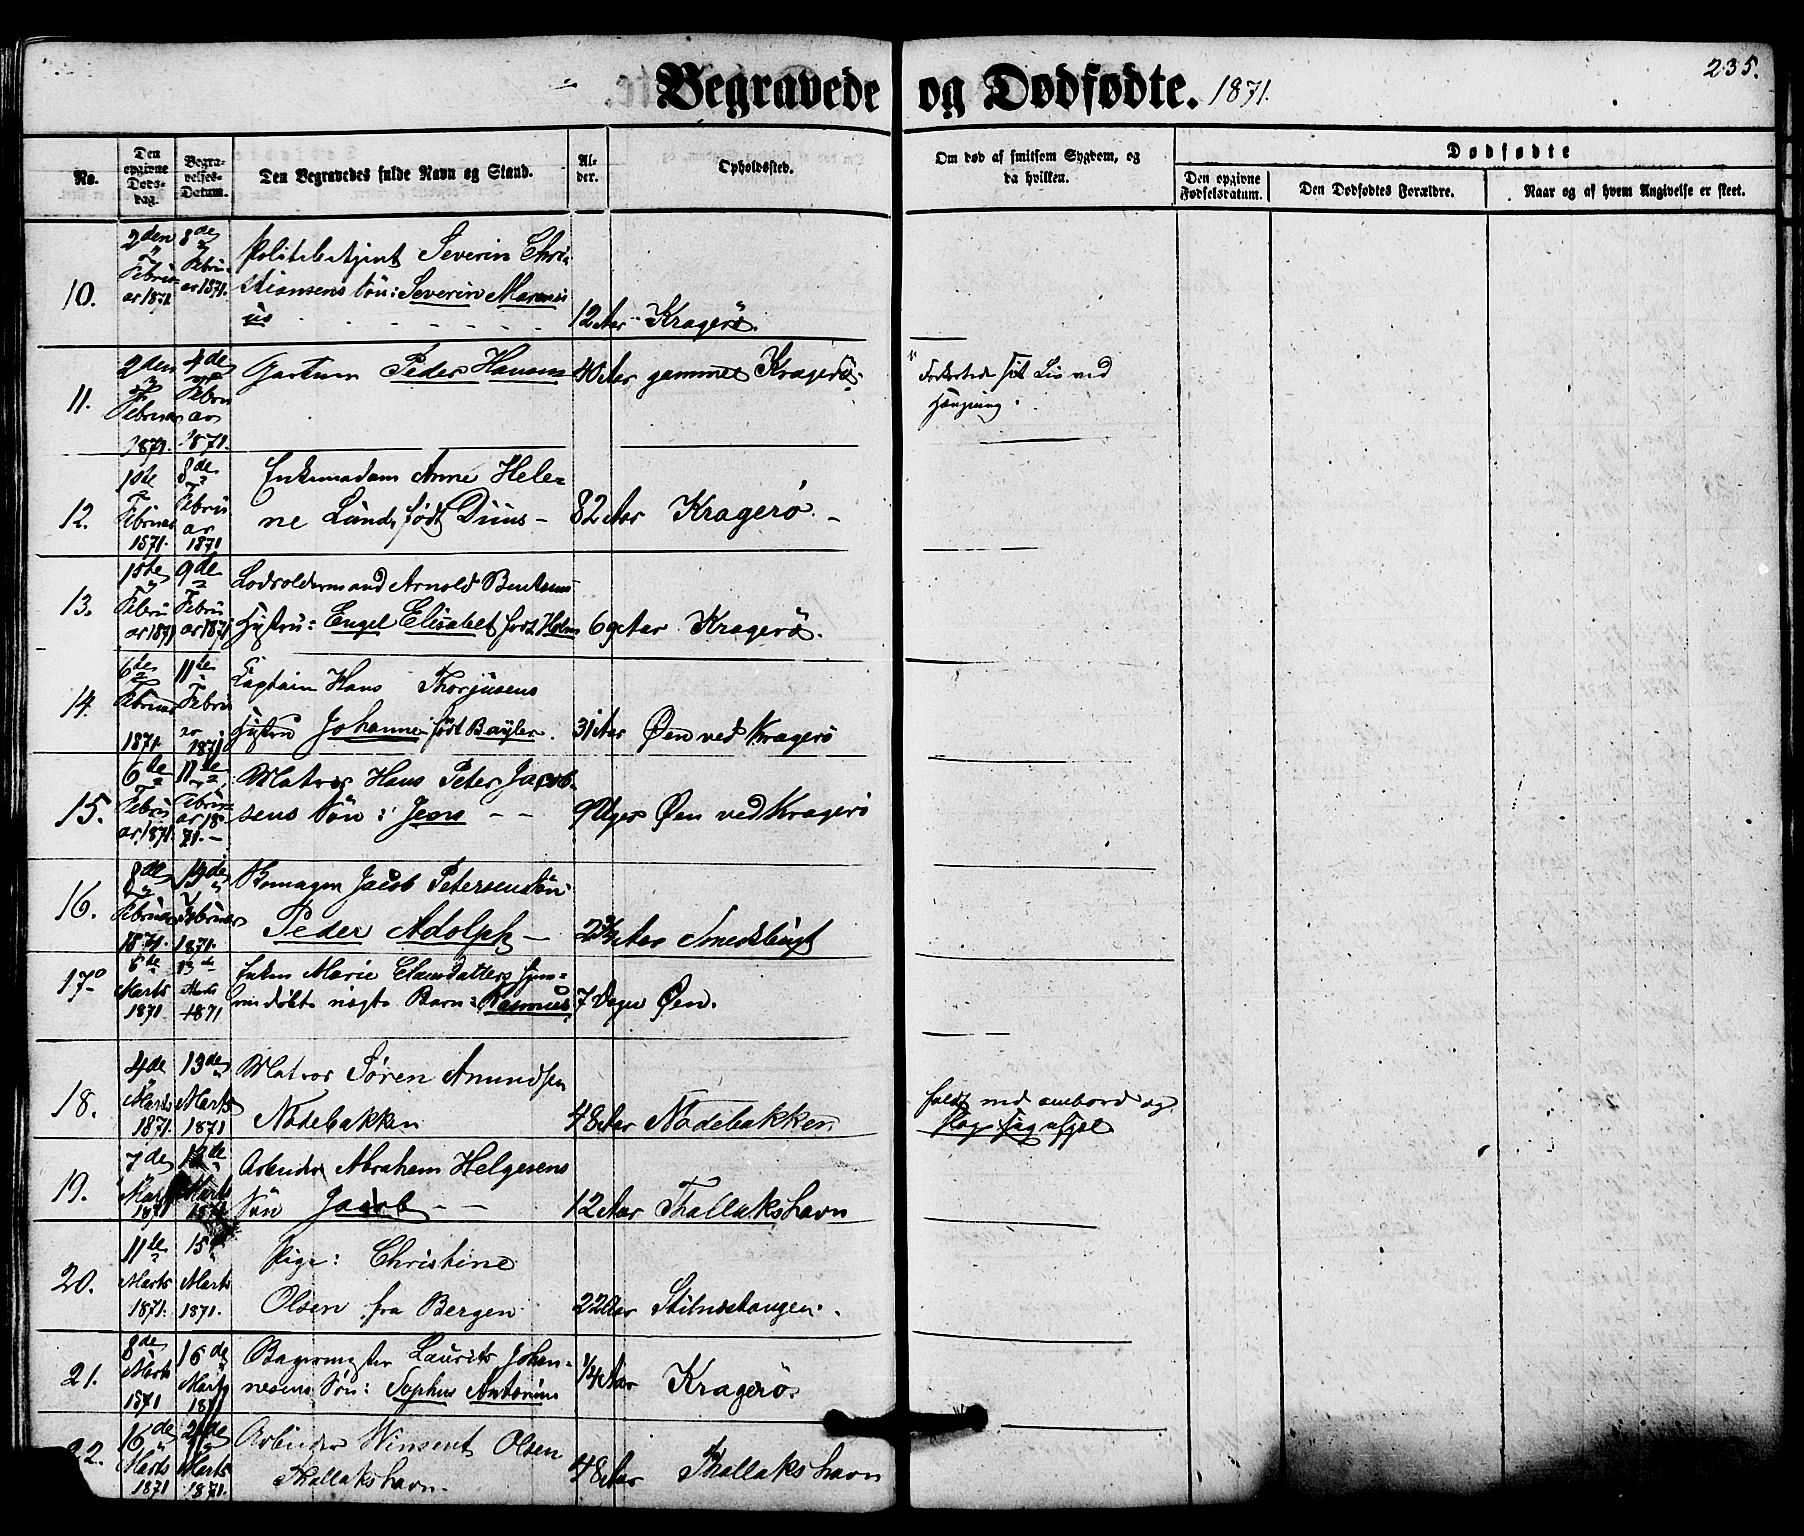 Begravede og Dødfødte. 1871.
235.
No.
Den opgivne Døds-dag.
Begra-velses-Datum.
Den Begravedes fulde Navn og Stand.
Al-der.
Opholdssted.
Om død af smitsom Sygdom, og da hvilken.
Dødfødte
Den opgivne Fødselsdatum.
Den Dødfødtes Forældre.
Naar og af hvem Angivelse er skeet.
10.
2den Februar 1871
8de Februar 1871.
Politibetjent Severin Chri-
stiansens Søn: Severin Marensi
us
12 Aar Kragerø.
11.
2den Februar 1871.
4de Februar 1871.
Gartner Peder Hansen 40 Aar gammel Kragerø.
Forkortede sit Liv ved
Hængning.
12.
1ste Februar 1871.
8de Februar 1871
Enkemadam Anne Hele-
ne Lund, født Duus - 82 Aar Kragerø -
13.
1ste Februar 1871
9de Februar 1871
Lodsoldermand Arnold Bentsens
Hustru: Engel Elisabet født Holm 69 Aar Kragerø.
14.
6de Februar 1871.
11de Februar 1871
Captain Hans Thorjusens
Hustru Johanne født Bayler. 31 Aar Øen ved Kragerø
15.
6de Februar 1871.
11de Februar 1871. -
Matros Hans Peter Jacob-
sens Søn: Jens - - 9 Uger Øen ved Kragerø
16.
8de Februar 1871.
Februar 1871.
Jacob Petersens Søn
Peder Adolph - Smedsbugt
17.
Marts 1871
13de Marts 1871
Enken Marie Clausdatters hjem-
medøbte uægte Barn: Rasmus, 7 Dage Øen.
18.
4de Marts 1871.
13de Marts 1871
Matros Søren Amundsen
Nodebakken 48 Aar Nodebakken
faldt ned ombord og
slog sig ihjel
19.
7de Marts 1871
Marts 1871
Arbeider Abraham Helgesens
Søn Jacob - - 12 Aar Thallakshavn
20.
11de Marts 1871.
15 Marts 1871.
Pige: Christine
Olsen fra Bergen 22 Aar Stilnestangen.
21.
8de Marts 1871
16de Marts 1871
Bagermester Laurits Johan-
nesens Søn: Sophus Antonius 1/4 Aar Kragerø.
22.
16de Marts 1871
Marts 1871.
Arbeider Winsent Olsen
Thallakshavn. 48 Aar Thallakshavn